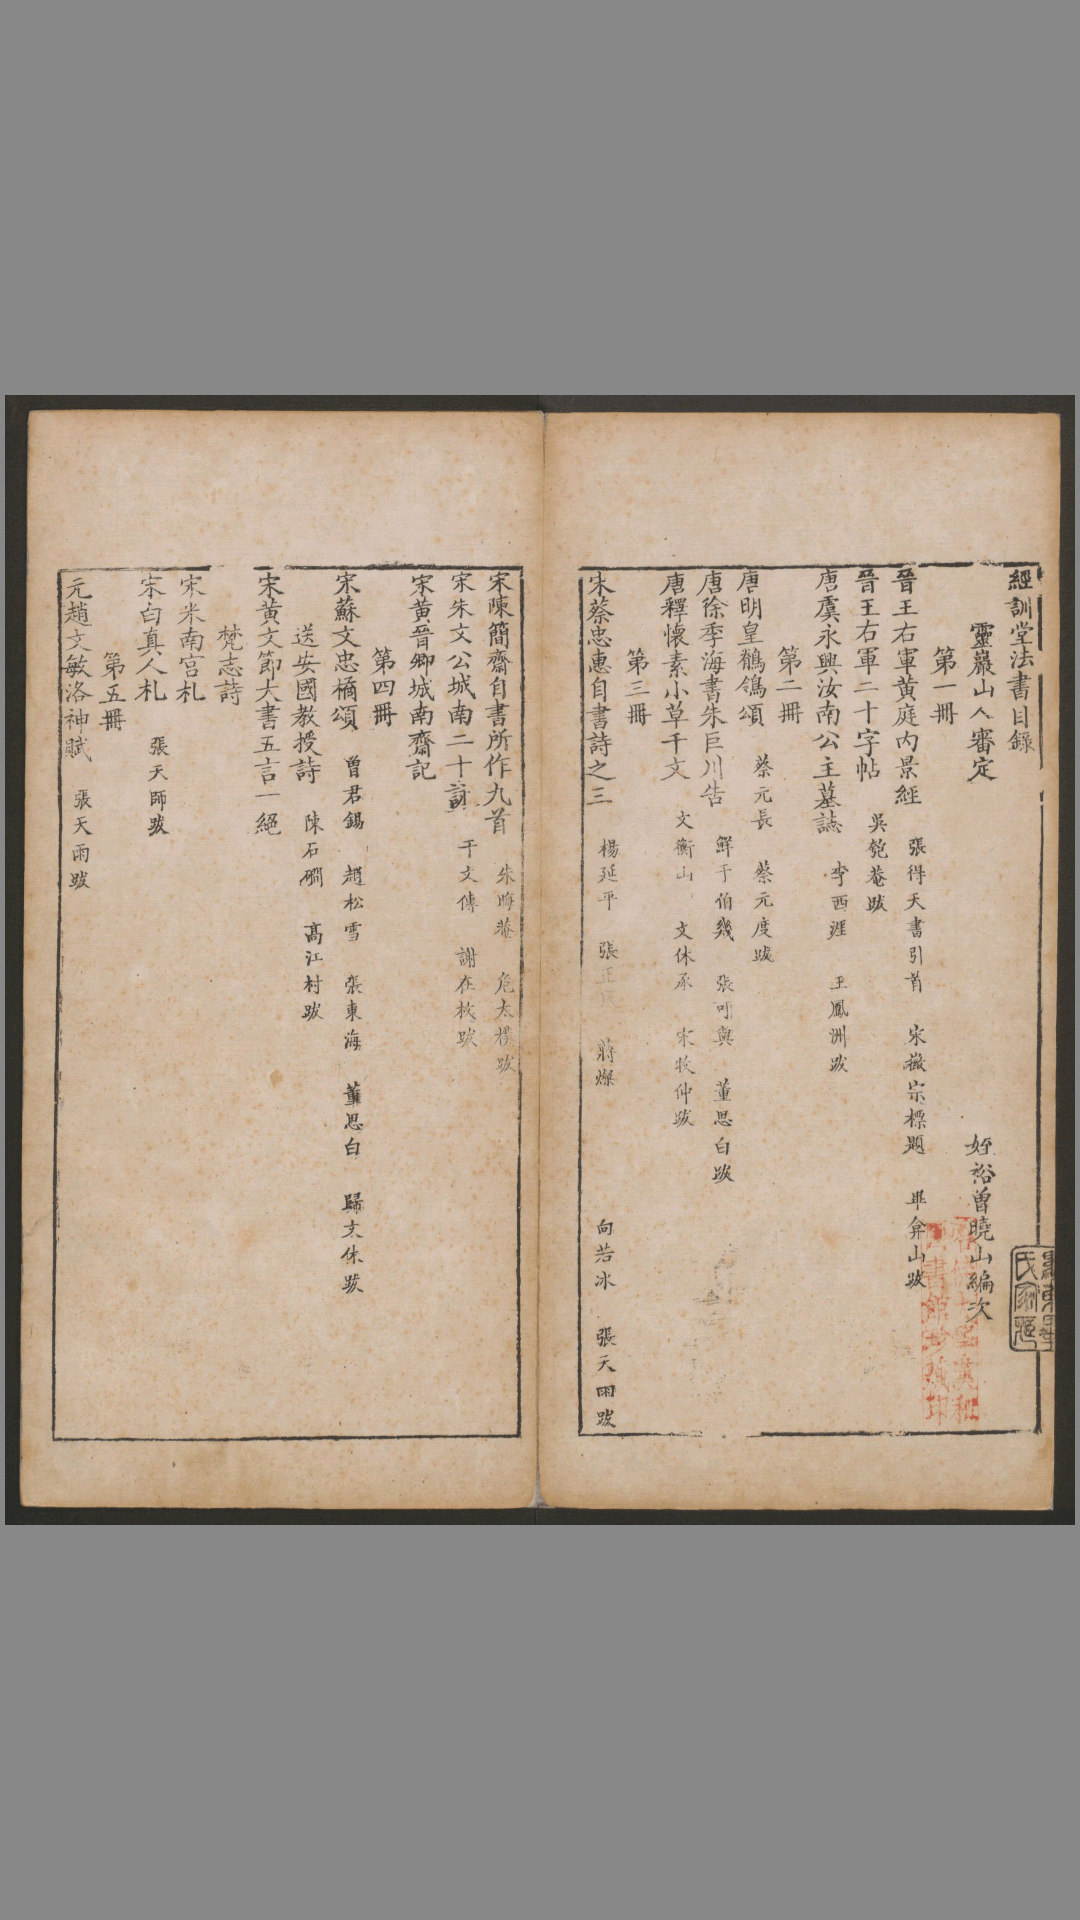 經訓堂法書目錄
靈巖山人審定 姪裕曾曉山編次
第一冊
晉王右軍黃庭內景經 張得天書引首 宋徽宗標題 畢弇山跋
晉王右軍二十字帖 吳匏菴跋
唐虞永興汝南公主墓誌 李西涯 王鳳洲跋
第二冊
唐明皇鶺鴒頌 蔡元長 蔡元度跋
唐徐季海書朱巨川告 鮮于伯幾 張可與 董思白跋
唐釋懷素小草千文 文衡山 文休承 宋牧仲跋
第三冊
宋蔡忠惠自書詩之三 楊延平 張正民 蔣燦 向若冰 張天雨跋
宋陳簡齋自書所作九首 朱晦菴 危太樸跋
宋朱文公城南二十詠 干文傳 謝在杭跋
宋黃晉卿城南齋記
第四冊
宋蘇文忠橘頌 曾君錫 趙松雪 張東海 董思白 歸文休跋
送安國教授詩 陳石礀 高江村跋
宋黃文節大書五言一絕
梵志詩
宋米南宮札
宋白真人札 張天師跋
第五冊
元趙文敏洛神賦 張天雨跋